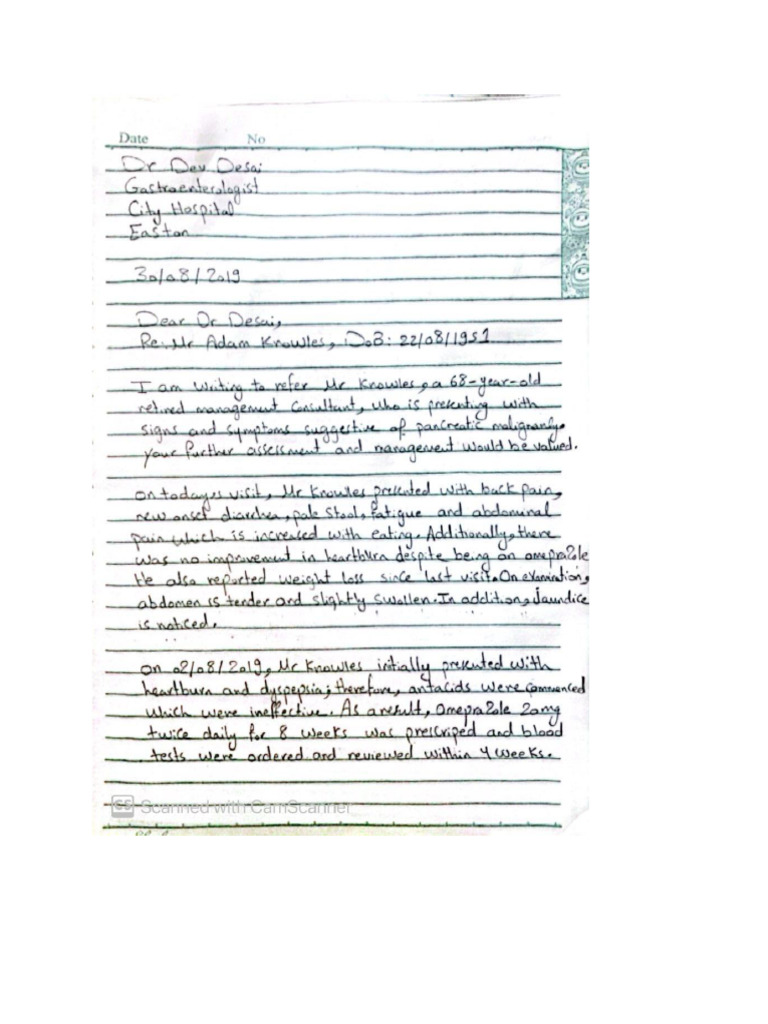 Date No
Dr Dev Desai
Gastroenterologist
City Hospital
Easton
30/08/2019
Dear Dr Desai,
Re: Mr Adam Knowles, DoB: 22/08/1951
I am writing to refer Mr Knowles, a 68-year-old
retired management consultant, who is presenting with
signs and symptoms suggestive of pancreatic malignancy.
your further assessment and management would be valued.
on today,s visit, Mr Knowles presented with back pain,
new onset diarrhea, pale stool, fatigue and abdominal
pain which is increased with eating. Additionally, there
was no improvement in heartburn despite being on omeprazole
He also reported weight loss since last visit. On examination,
abdomen is tender and slightly swollen. In addition, Jaundice
is noticed.
on 02/08/2019, Mr Knowles initially presented with
heartburn and dyspepsia; therefore, antacids were commenced
which were ineffective. As a result, Omeprazole 20mg
twice daily for 8 weeks was prescriped and blood
tests were ordered and reviewed within 4 weeks.
CS Scanned with CamScanner